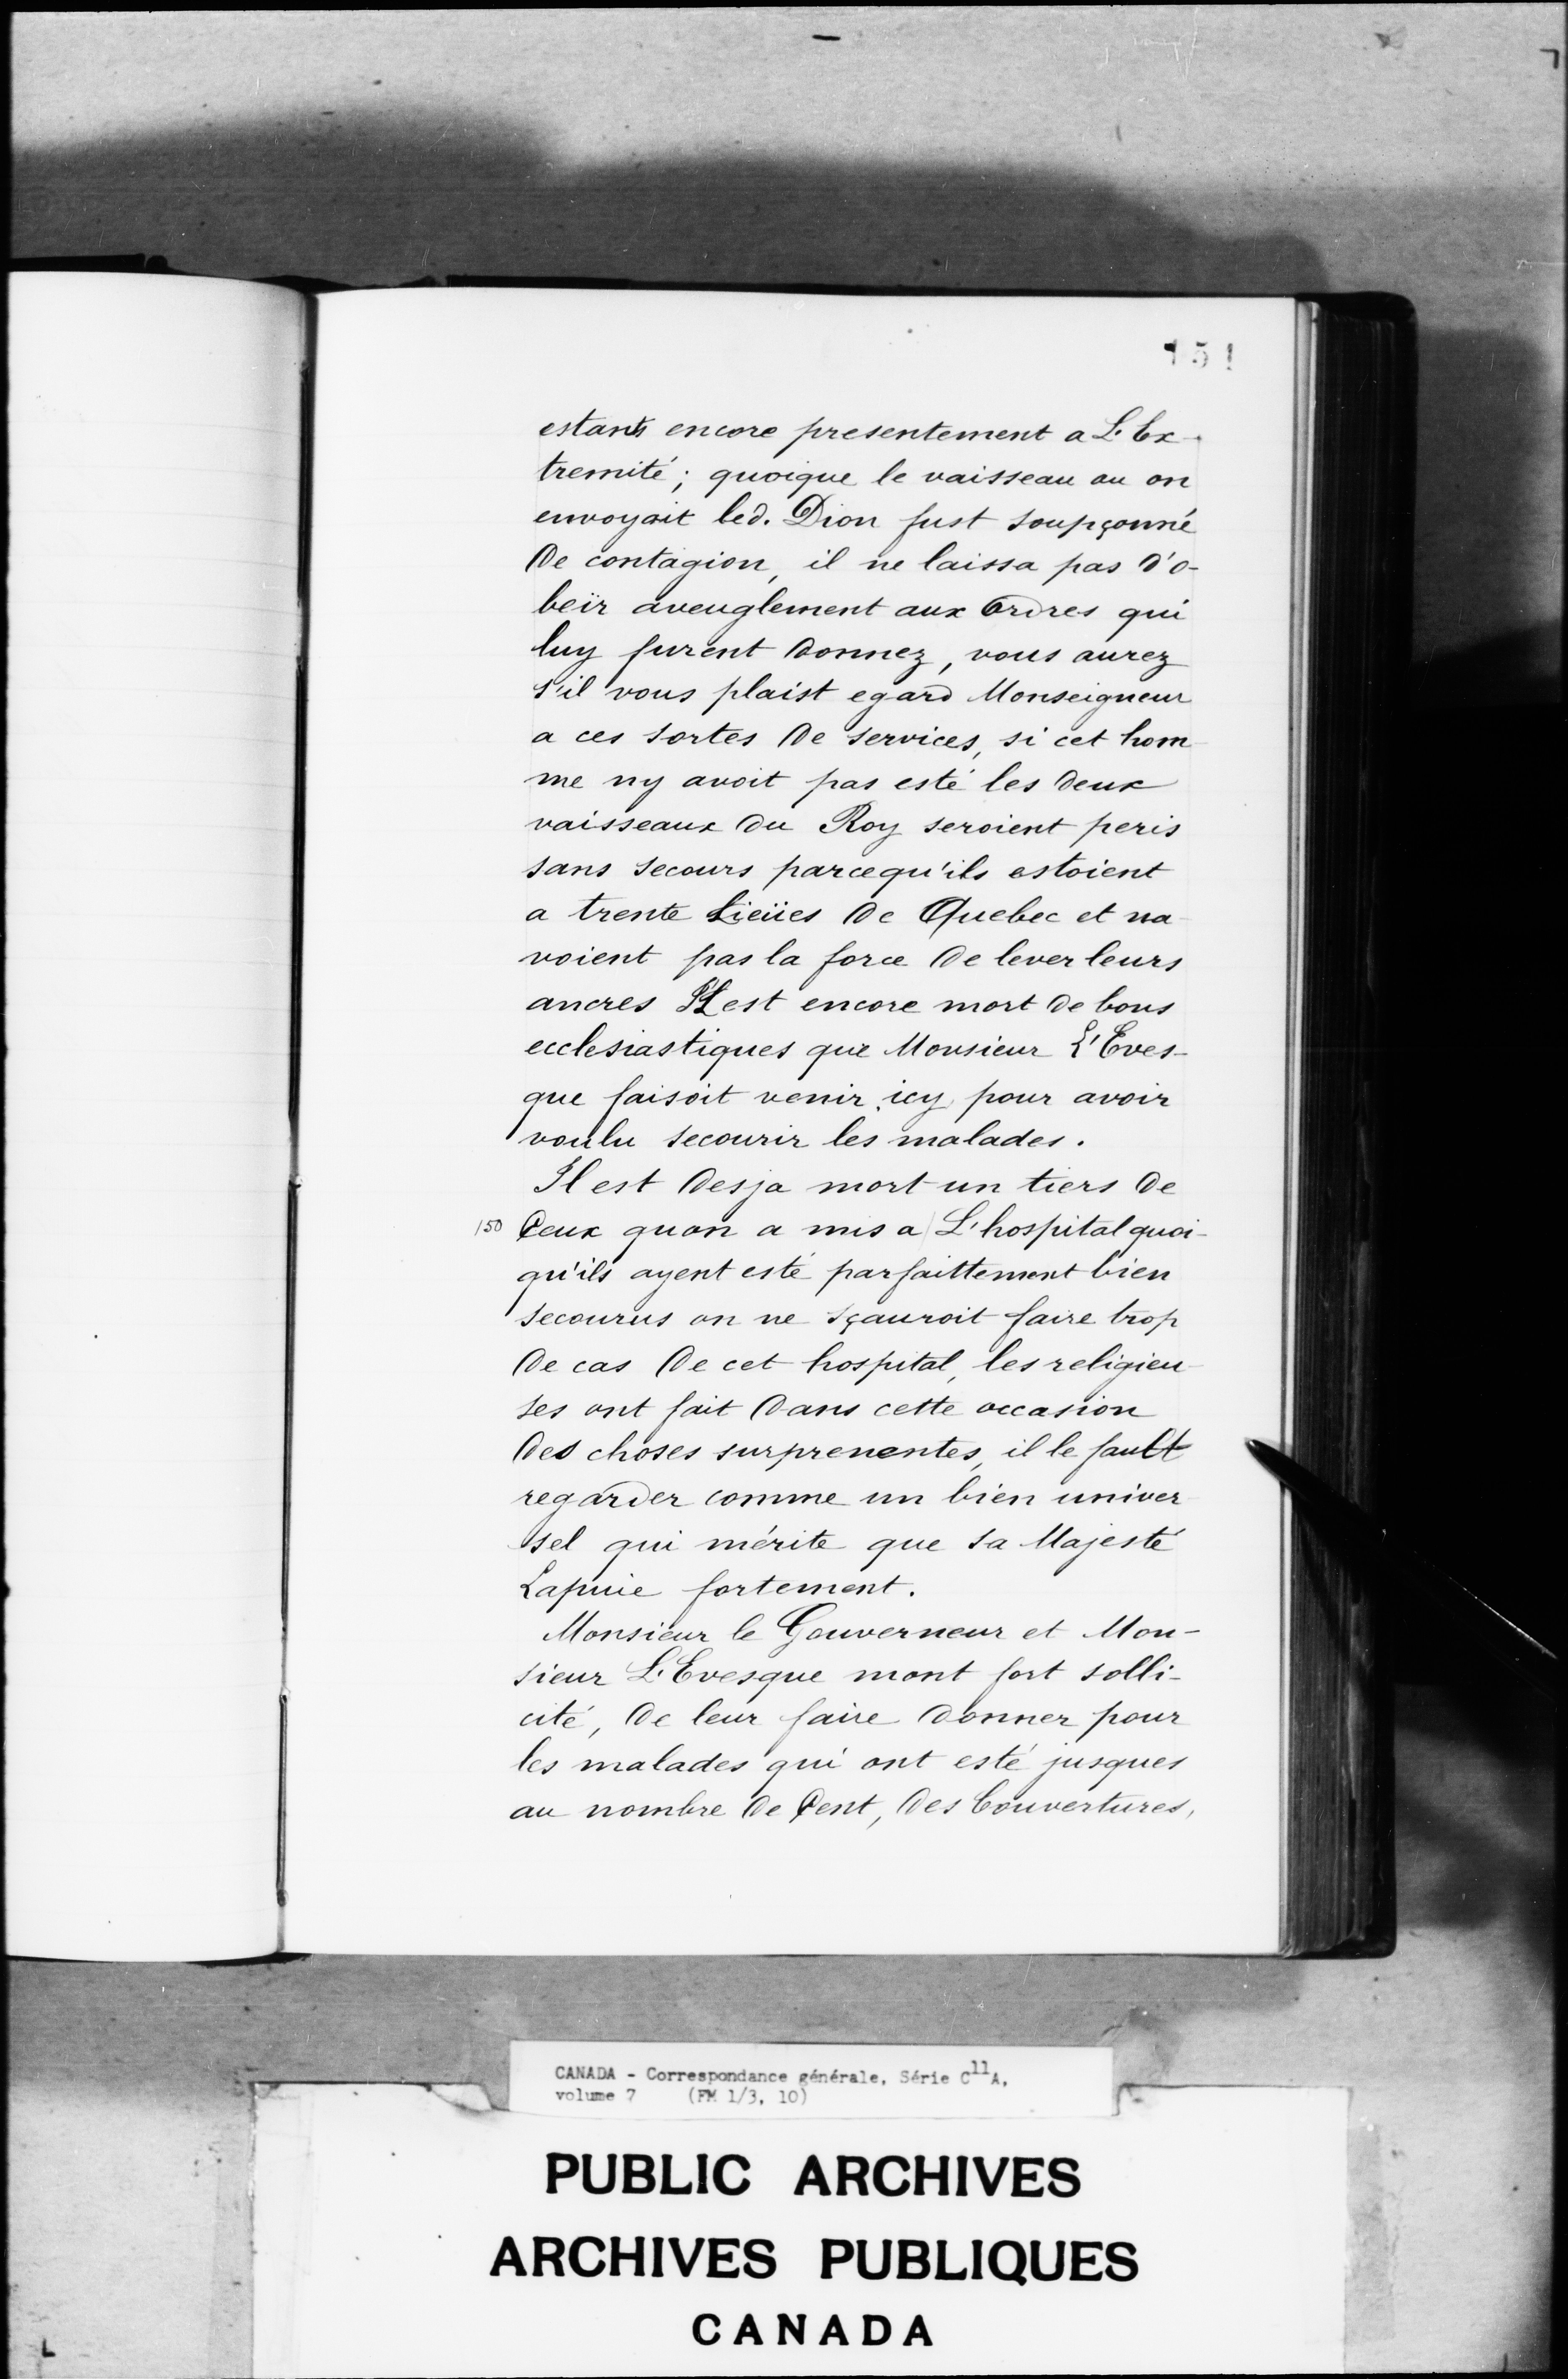 151
estants encore presentement a L'Ex-
tremité; quoique le vaisseau ou on
envoyait led. Dion fust soupçonné
De contagion, il ne laissa pas d'o-
beïr aveuglement aux Ordres qui
luy furent donnez, vous aurez
s'il vous plaist egard Monseigneur
a ces sortes de services, si cet hom-
me ny avoit pas esté les deux
vaisseaux du Roy seroient peris
sans secours parcequ'ils estoient
a trente Lieües de Quebec et na-
voient pas la force de lever leurs
ancres Il est encore mort de bons
ecclesiastiques que Monsieur L'Eves-
que faisoit venir icy pour avoir
voulu secourir les malades.
Il est desja mort un tiers de
150 Ceux quon a mis a L'hospital quoi-
qu'ils ayent esté parfaittement bien
secourus on ne sçauroit faire trop
de cas de cet hospital, les religieu-
ses ont fait dans cette occasion
des choses surprenentes, il le fault
regarder comme un bien univer-
sel qui mérite que sa Majesté
Lapuie fortement.
Monsieur le Gouverneur et Mon-
sieur L'Evesque mont fort solli-
cité, de leur faire donner pour
les malades qui ont esté jusques
au nombre de Cent, des Couvertures,
CANADA - Correspondance générale, Série C11A,
volume 7 (FM 1/3, 10)
PUBLIC ARCHIVES
ARCHIVES PUBLIQUES
CANADA